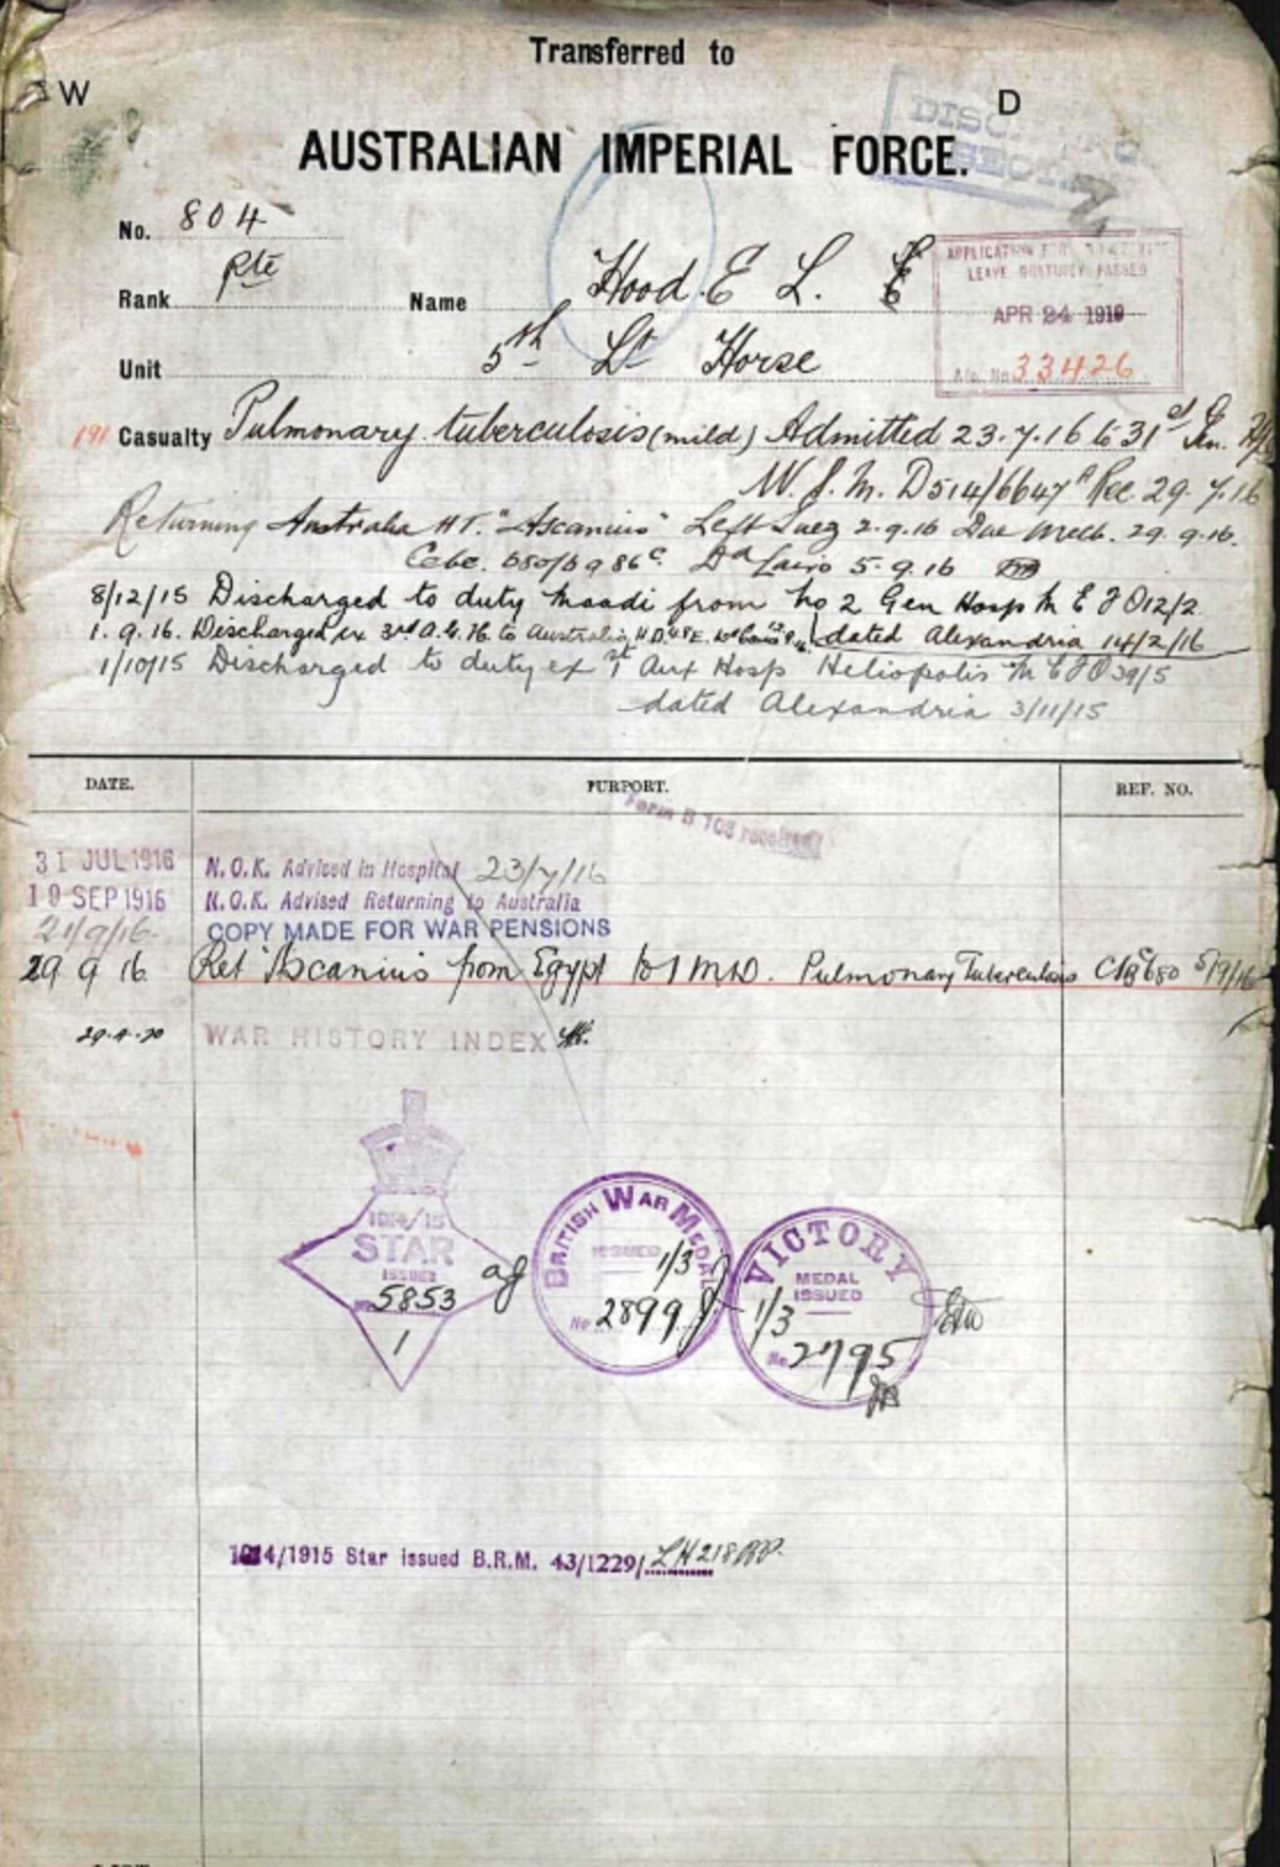 Transferred to
W D
AUSTRALIAN IMPERIAL FORCE.
No. 804
Rank Pte Name Hood E L. E
Unit 5th Lt Horse
APPLICATION
LEAVE GRATUITY PASSED
APR 24 1919
33426
191 Casualty Pulmonary tuberculosis (mild) Admitted 23.7.16 to 31st
W.J.M. D514/6647 Rec 29.7.16
Returning Australia HT. "Ascanius" Left Suez 2.9.16 Due Melb. 29.9.16.
Cairo 5.9.16
8/12/15 Discharged to duty Maadi from No 2 Gen Hosp M E F O12/2
1.9.16. Discharged ex 3rd A.G.H. to Australia dated Alexandria 14/2/16
1/10/15 Discharged to duty ex 1st Aux Hosp Heliopolis M E F O39/5
dated Alexandria 3/11/15
DATE. PURPORT. REF. NO.
Form B 103 received
31 JUL 1916 N.O.K. Advised in Hospital 23/7/16
19 SEP 1916 N.O.K. Advised Returning to Australia
21/9/16 COPY MADE FOR WAR PENSIONS
29 9 16 Ret "Ascanius from Egypt to 1 M.D. Pulmonary Tuberculosis
29.4.20 WAR HISTORY INDEX
1914/15
STAR
ISSUED
No 5853
1
BRITISH WAR MEDAL
ISSUED
1/3
No 2899
VICTORY
MEDAL
ISSUED
1/3
No 2795
1914/1915 Star issued B.R.M. 43/1229/LH218